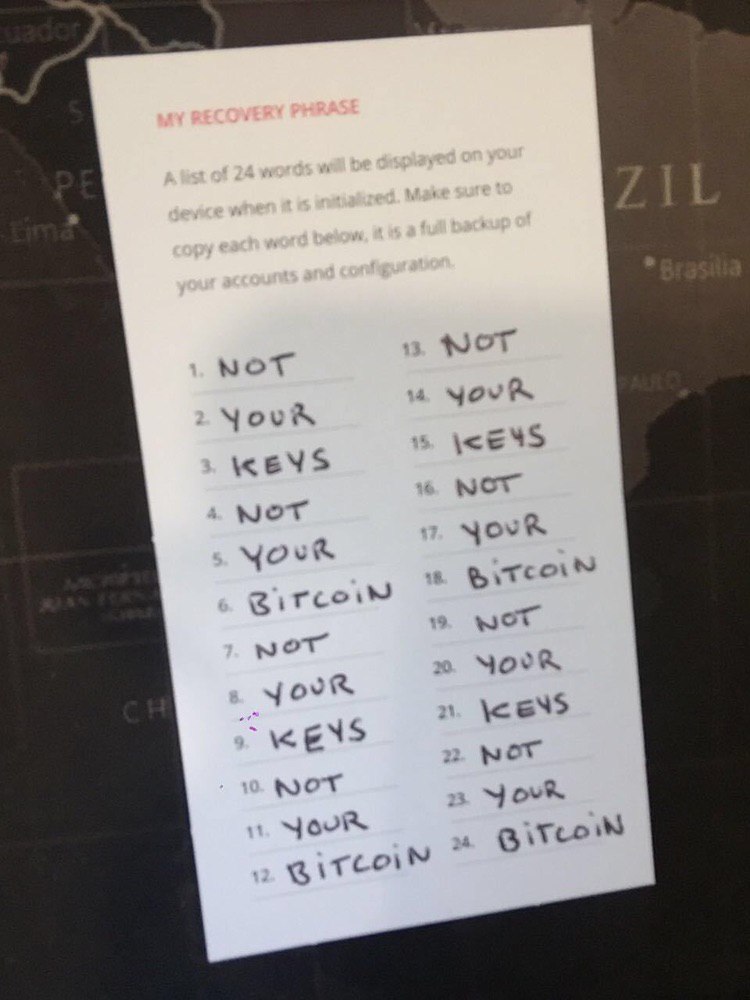 uador
PE
Lima
ZIL
Brasilia
PAULO
CH
MY RECOVERY PHRASE
A list of 24 words will be displayed on your
device when it is initialized. Make sure to
copy each word below, it is a full backup of
your accounts and configuration.
1. NOT
2. YOUR
3. KEYS
4. NOT
5. YOUR
6. BiTCOiN
7. NOT
8. YOUR
9. KEYS
10. NOT
11. YOUR
12. BiTCOiN
13. NOT
14. YOUR
15. KEYS
16. NOT
17. YOUR
18. BiTCOiN
19. NOT
20. YOUR
21. KEYS
22. NOT
23. YOUR
24. BiTCOiN